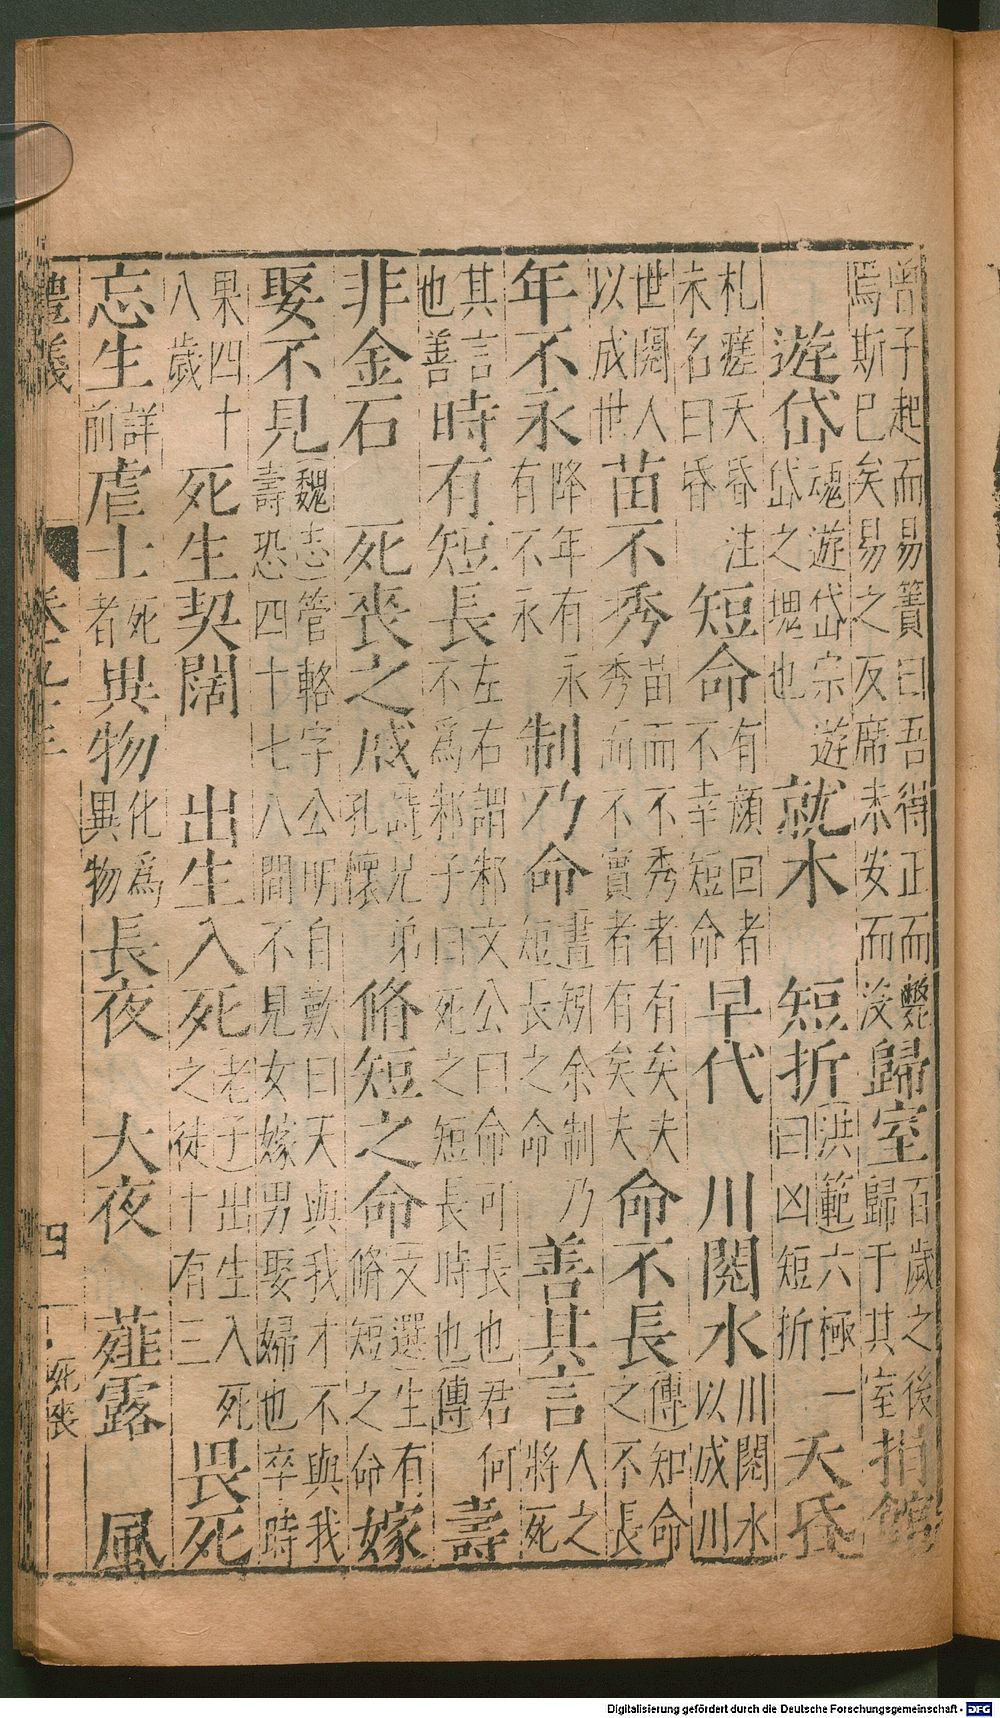 曾子起而易簀曰吾得正而斃焉斯已矣易之反席未安而沒歸室百歲之後歸于其室捐館
遊岱魂遊岱宗遊岱之䰟也就木短折洪範六極一曰凶短折夭昏
札瘥夭昏注未名曰昏短命有顏回者不幸短命早代川閱水川閱水以成川
世閱人以成世苗不秀苗而不秀者有矣夫秀而不實者有矣夫命不長傳知命之不長
年不永降年有永有不永制乃命書矧余制乃短長之命善其言人之將死
其言也善時有短長左右謂邾文公曰命可長也君何不爲邾子曰死之短長時也傳壽
非金石死喪之戚詩兄弟孔懷脩短之命文選生有脩短之命嫁
娶不見魏志管輅字公明自歎曰天與我才不與我壽恐四十七八間不見女嫁男娶婦也卒時
果四十八歲死生契闊出生入死老子出生入死之徒十有三畏死
忘生詳前虐士死者異物化爲異物長夜大夜薤露風
禮儀 四 死喪
Digitalisierung gefördert durch die Deutsche Forschungsgemeinschaft - DFG